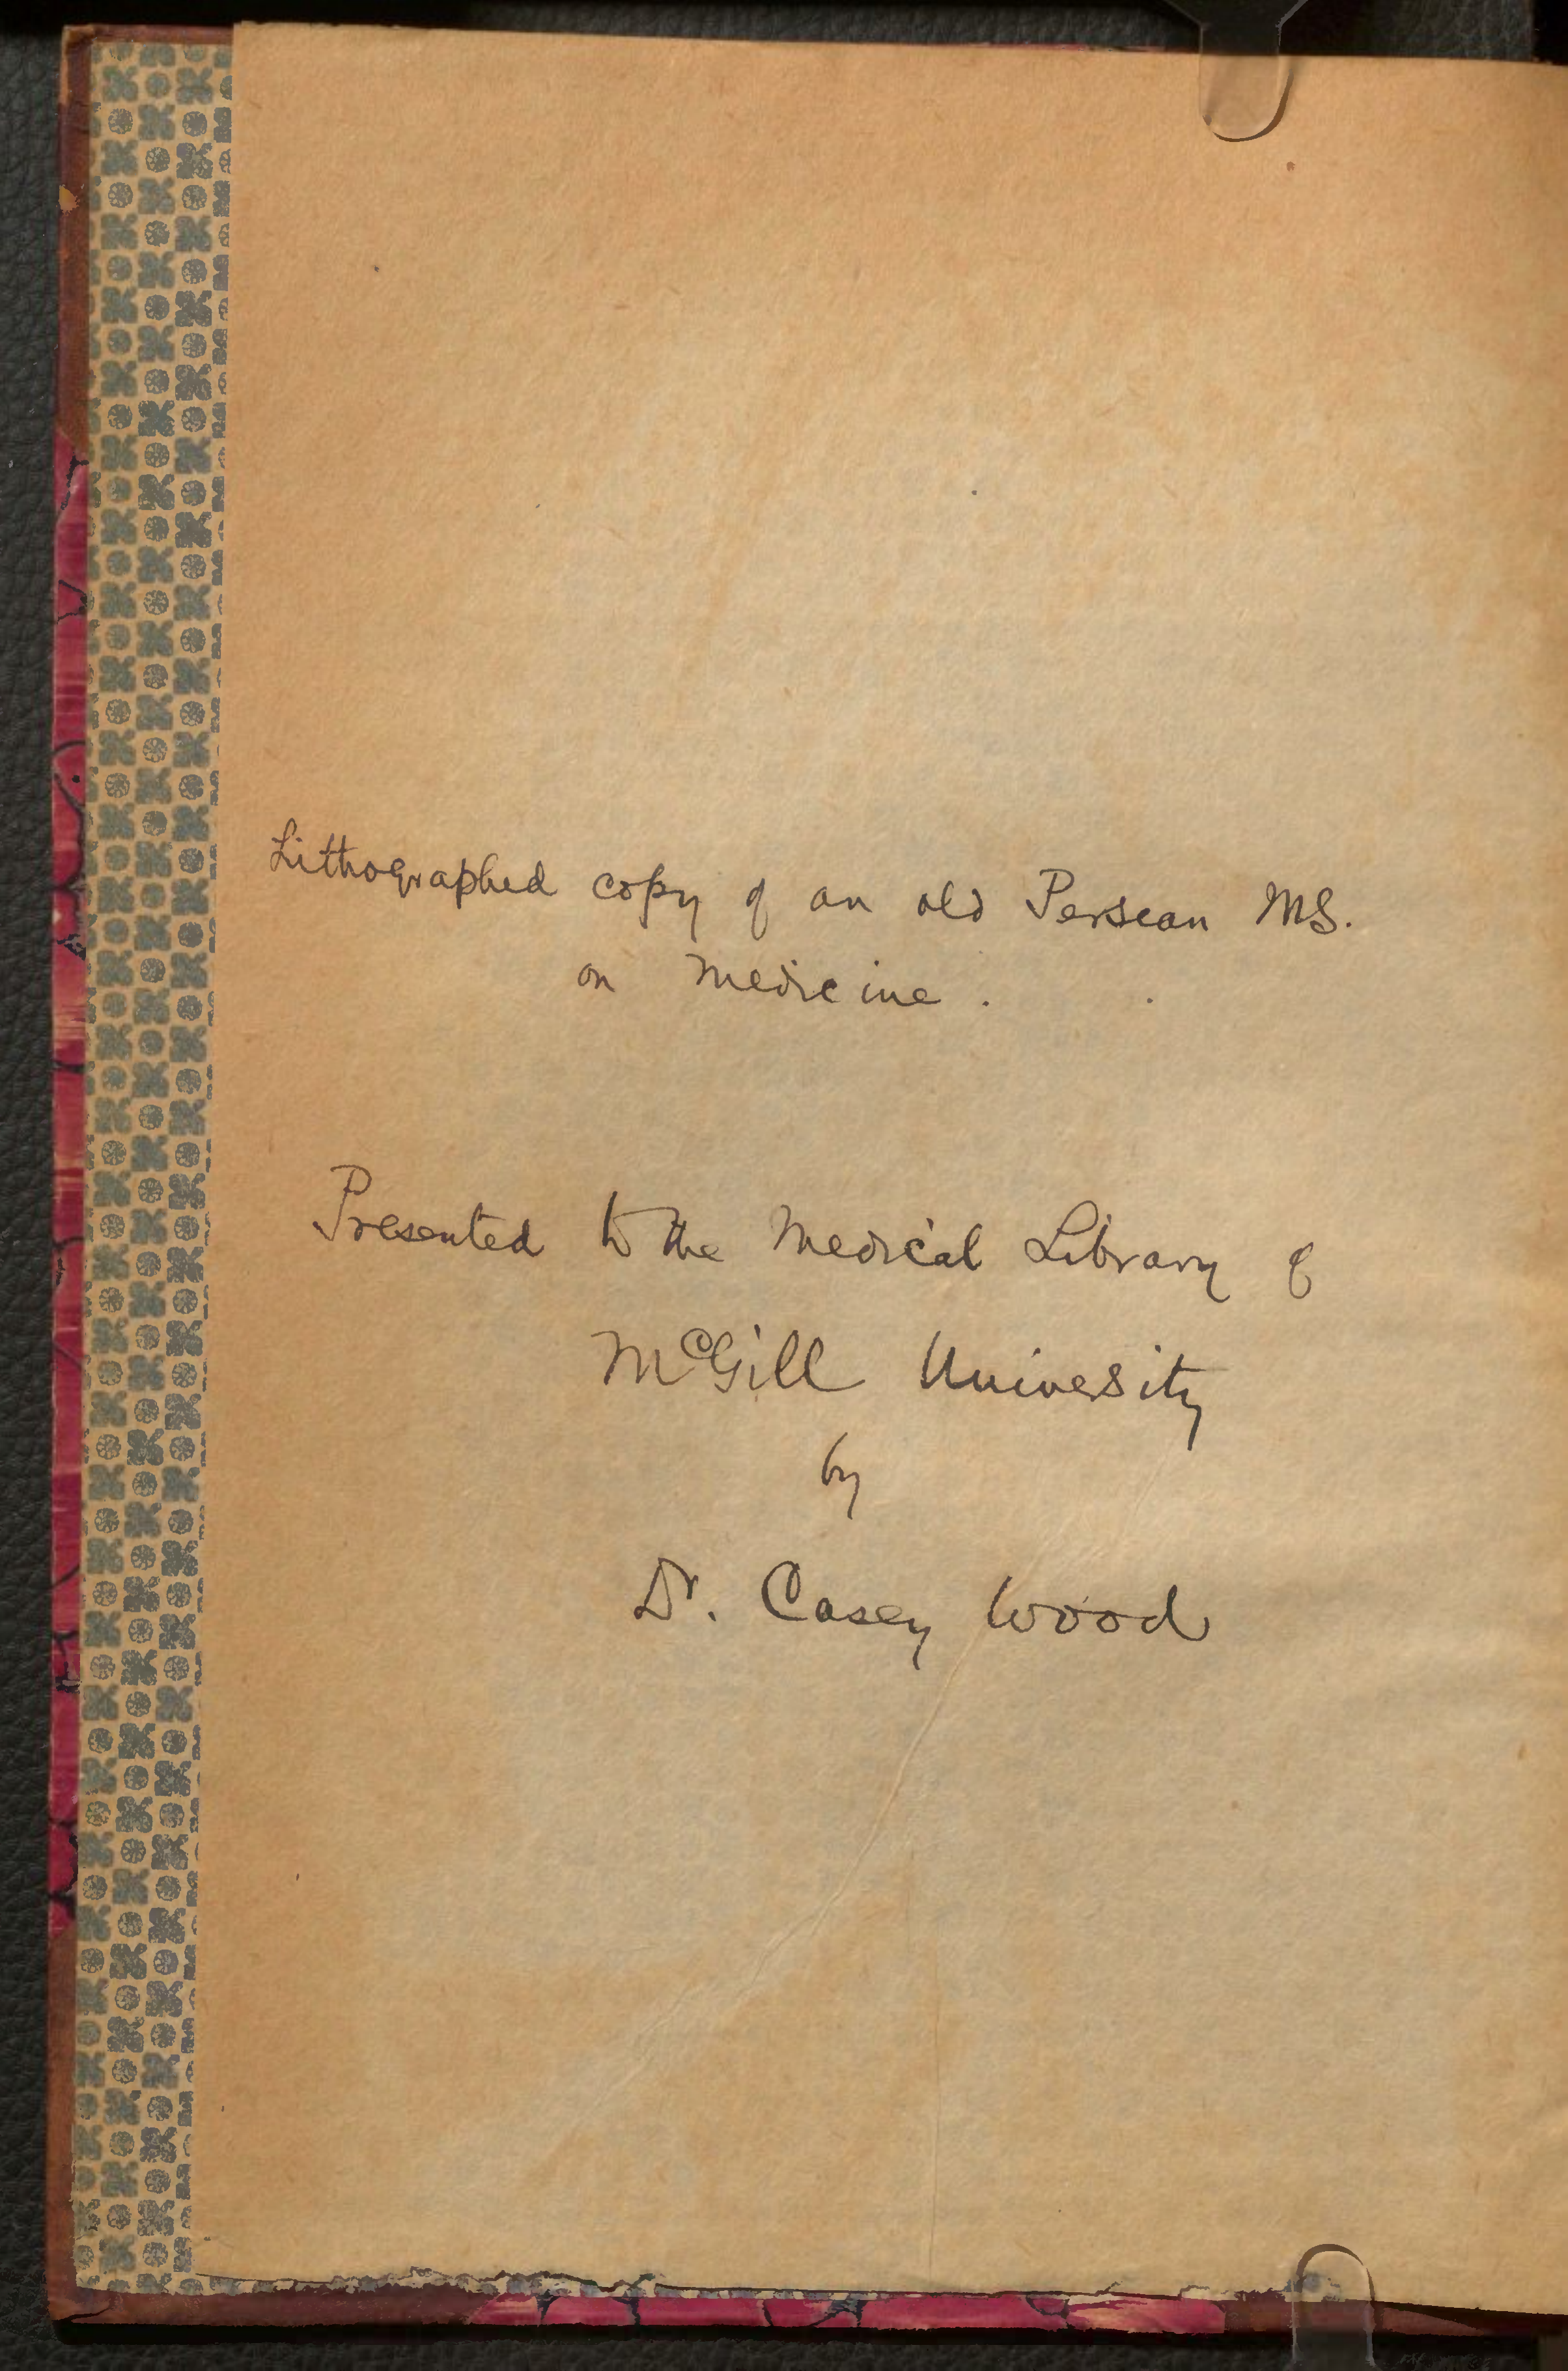 Lithographed copy of an old Persean MS.
on Medicine.
Presented to the Medical Library of
McGill University
by
Dr. Casey Wood